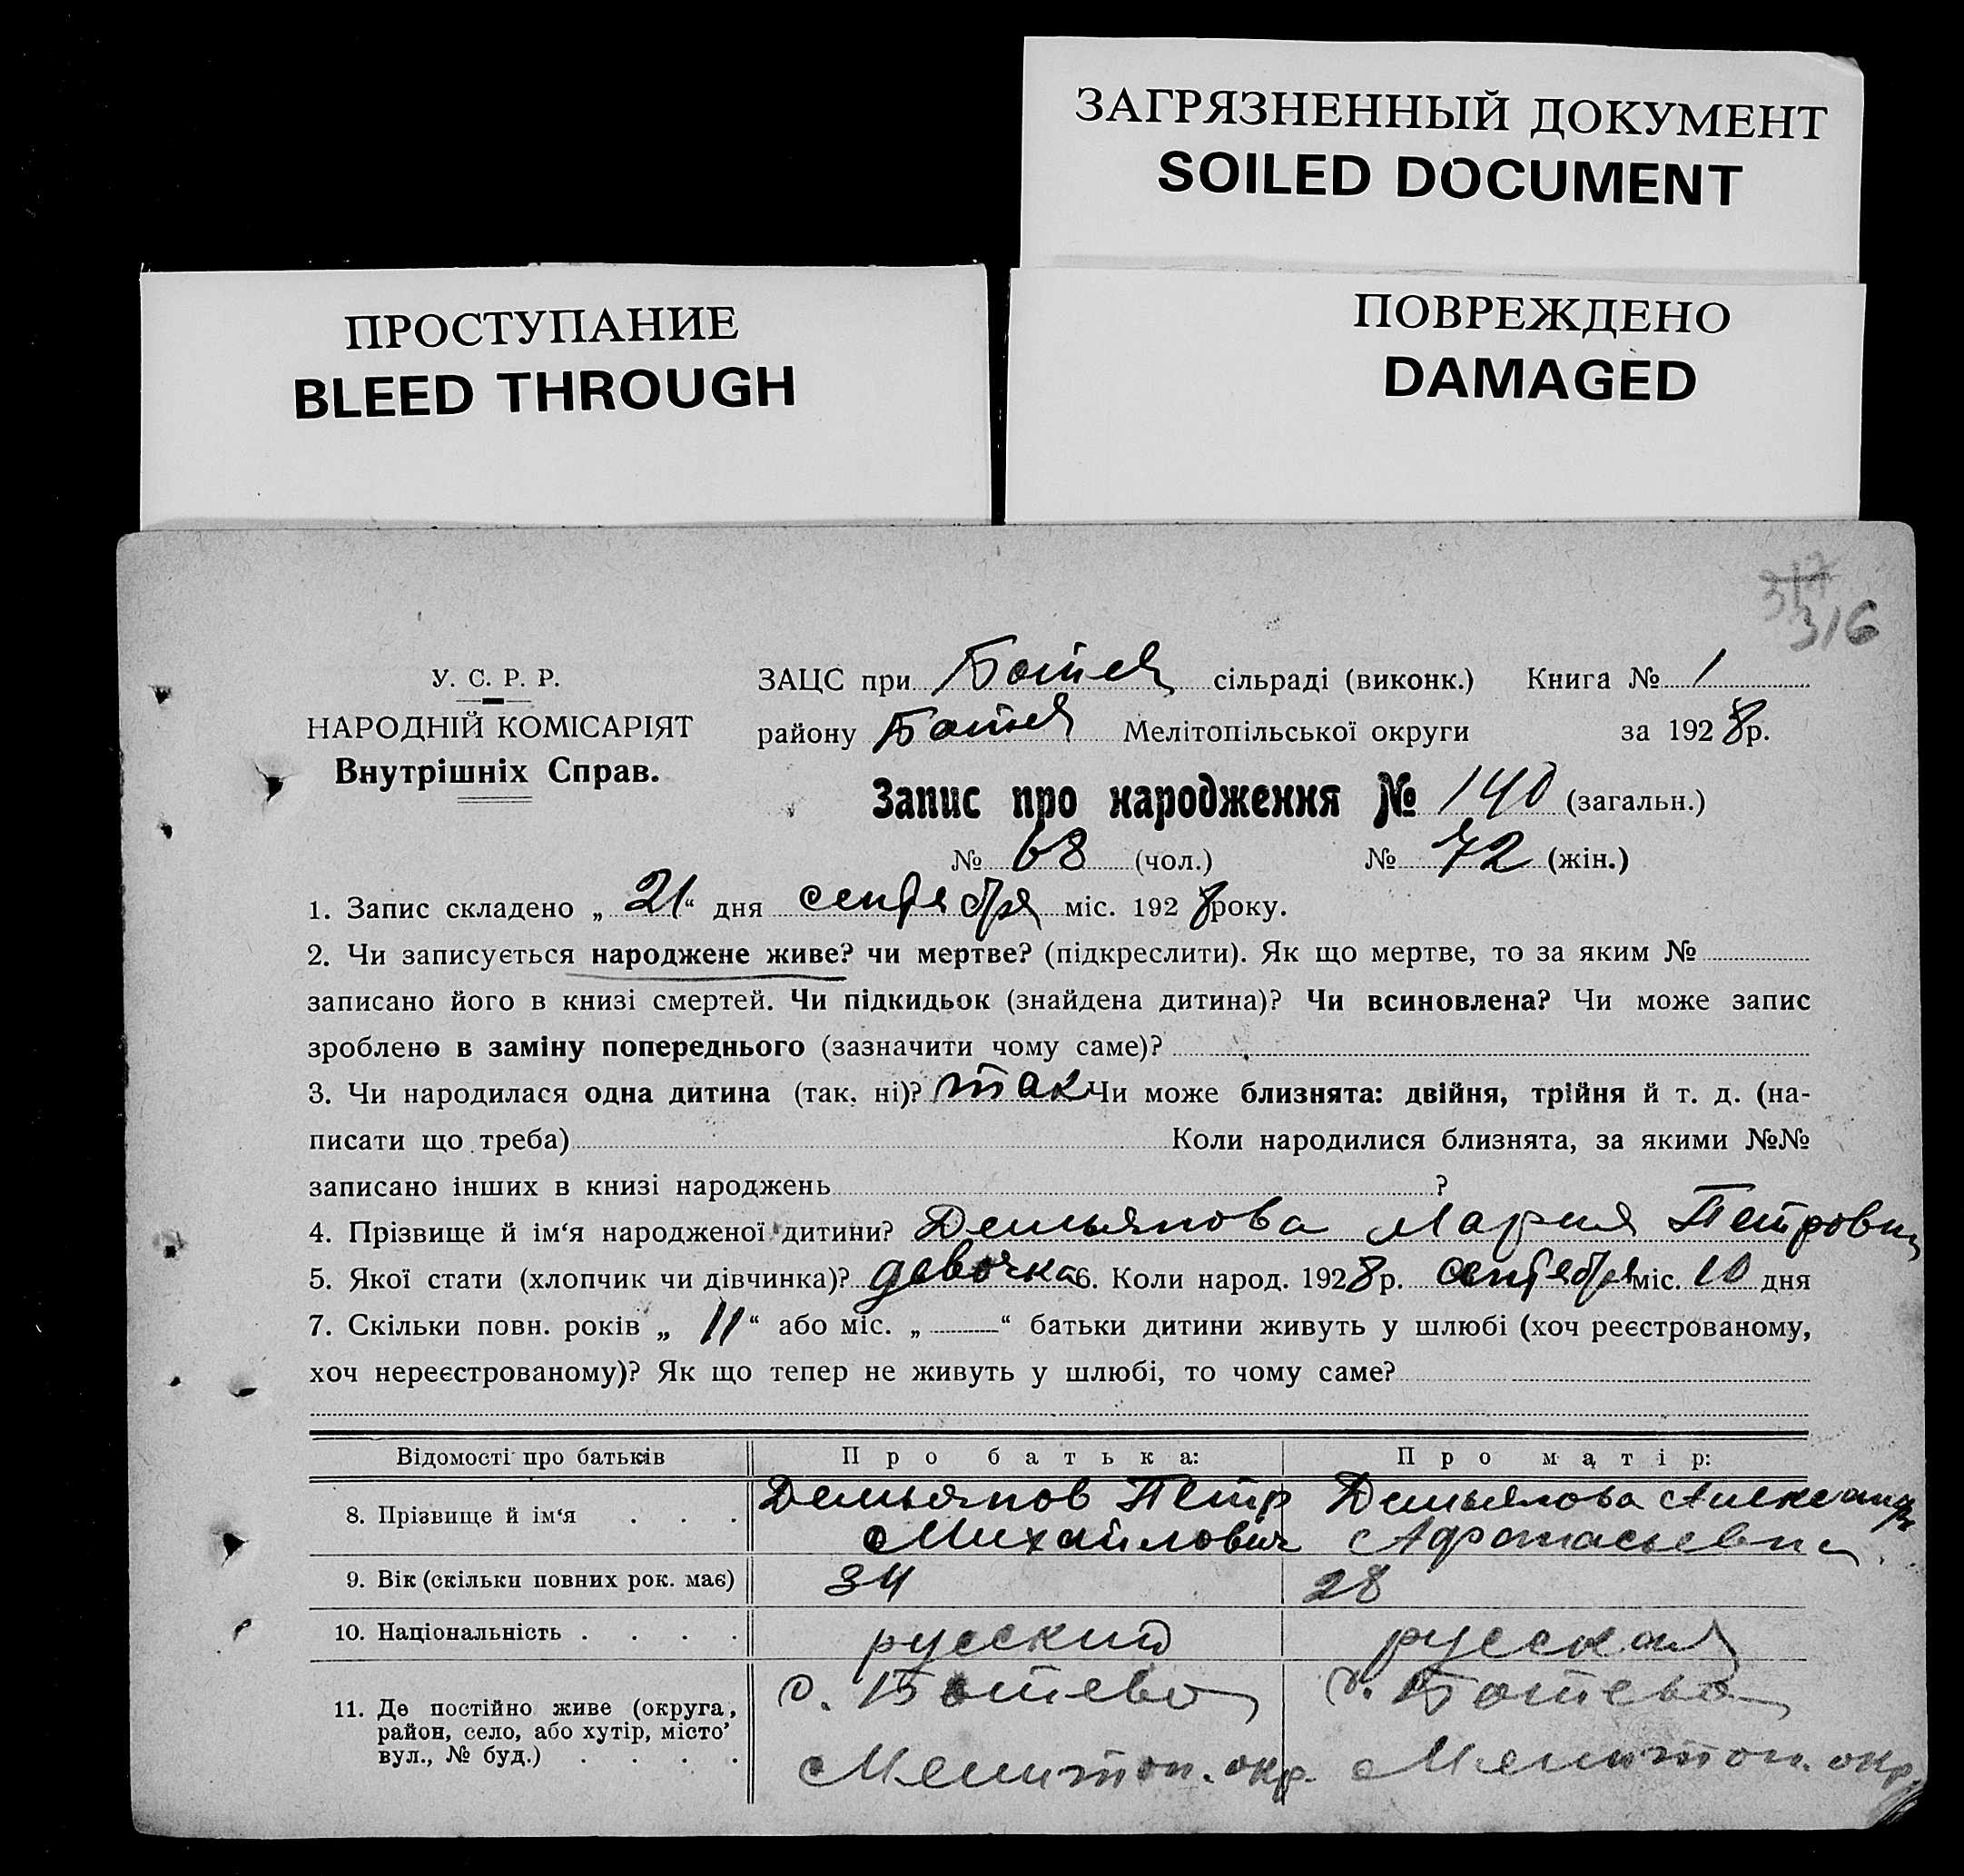 ЗАГРЯЗНЕННЫЙ ДОКУМЕНТ
SOILED DOCUMENT
ПРОСТУПАНИЕ
BLEED THROUGH
ПОВРЕЖДЕНО
DAMAGED
317
316
У. С. Р. Р.
НАРОДНІЙ КОМІСАРІЯТ
Внутрішніх Справ.
ЗАЦС при Ботев сільраді (виконк.) Книга № 1
району Ботев Мелітопільської округи за 1928 р.
Запис про народження № 140 (загальн.)
№ 68 (чол.) № 72 (жін.)
1. Запис складено „ 21 “ дня сентября міс. 1928 року.
2. Чи записується народжене живе? чи мертве? (підкреслити). Як що мертве, то за яким №
записано його в книзі смертей. Чи підкидьок (знайдена дитина)? Чи всиновлена? Чи може запис
зроблено в заміну попереднього (зазначити чому саме)?
3. Чи народилася одна дитина (так, ні)? так Чи може близнята: двійня, трійня й т. д. (на-
писати що треба) Коли народилися близнята, за якими №№
записано інших в книзі народжень ?
4. Прізвище й ім‘я народженої дитини? Демьянова Мария Петровн
5. Якої стати (хлопчик чи дівчинка)? девочка 6. Коли народ. 1928 р. сентября міс. 10 дня
7. Скільки повн. років „ 11 “ або міс. „ — “ батьки дитини живуть у шлюбі (хоч реєстрованому,
хоч нереєстрованому)? Як що тепер не живуть у шлюбі, то чому саме?
Відомості про батьків Про батька: Про матір:
8. Прізвище й ім‘я . . . Демьянов Петр Демьянова Александр
Михайлович Афонасьевна
9. Вік (скільки повних рок. має) 34 28
10. Національність . . . . русский русская
11. Де постійно живе (округа, с. Ботево с. Ботево
район, село, або хутір, місто’
вул., № буд.) . . . . Мелитоп. окр. Мелитоп. окр.